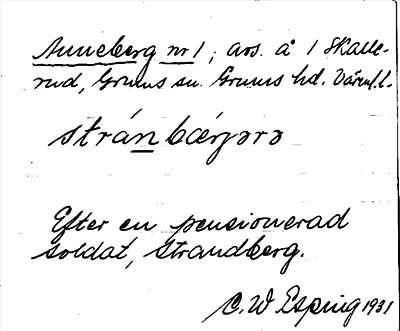 Anneberg nr 1, avs. å 1 Skalle-
rud, Grums sn. Grums hd. Värml. l.
strán bærjərə
Efter en pensionerad
soldat, Strandberg.
C. W Esping 1931